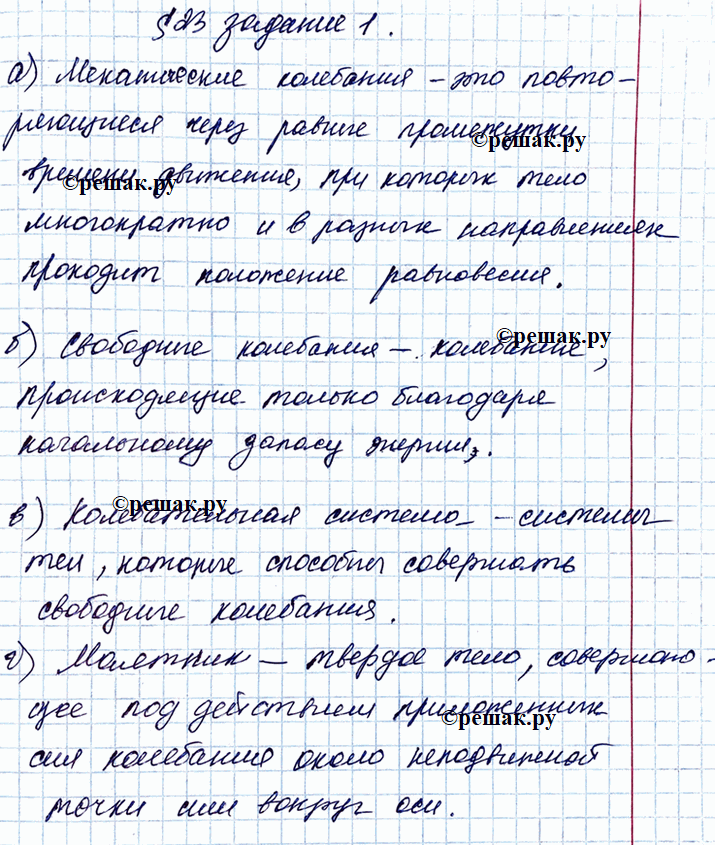 §23 задание 1.
а) Механические колебания – это повто-
ряющиеся через равные промежутки
времени движения, при которых тело
многократно и в разных направлениях
проходит положение равновесия.
б) Свободные колебания – колебание,
происходящие только благодаря
начальному запасу энергии.
в) Колебательная система – системы
тел, которые способны совершать
свободные колебания.
г) Маятник – твердое тело, совершаю-
щее под действием приложенных
сил колебания около неподвижной
точки или вокруг оси.
©решак.ру
©решак.ру
©решак.ру
©решак.ру
©решак.ру